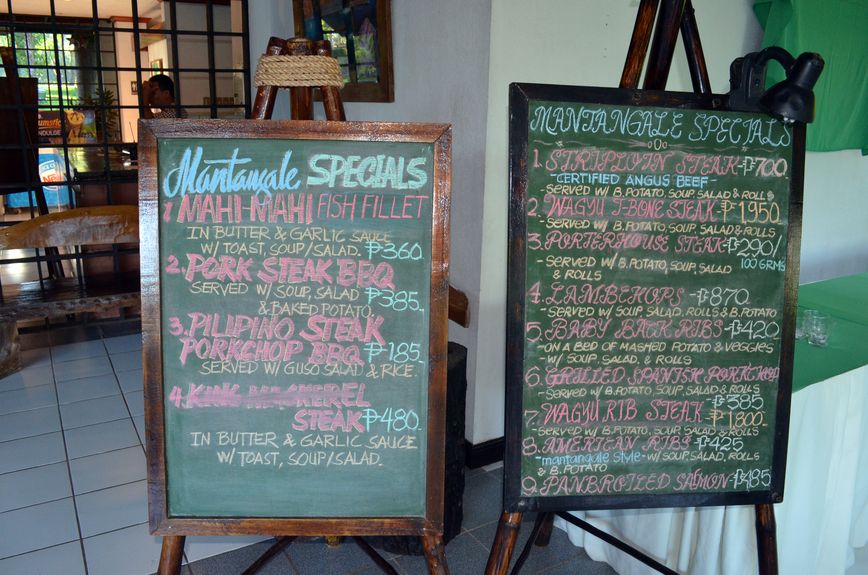 Mantangale SPECIALS
1. MAHI-MAHI FISH FILLET
IN BUTTER & GARLIC SAUCE
W/ TOAST, SOUP/SALAD. ₱360.
2. PORK STEAK BBQ
SERVED W/ SOUP, SALAD ₱385.
& BAKED POTATO.
3. PILIPINO STEAK
PORKCHOP BBQ ₱185.
SERVED W/ GUSO SALAD & RICE.
4. KING MACKEREL
STEAK ₱480.
IN BUTTER & GARLIC SAUCE
W/ TOAST, SOUP/SALAD.
MANTANGALE SPECIALS
1. STRIPLOIN STEAK-₱700.
-CERTIFIED ANGUS BEEF-
-SERVED W/ B.POTATO, SOUP, SALAD & ROLLS
2. WAGYU T-BONE STEAK-₱1950.
-SERVED W/ B.POTATO, SOUP, SALAD & ROLLS
3. PORTERHOUSE STEAK-₱290/
100 GRMS
-SERVED W/ B.POTATO, SOUP, SALAD
& ROLLS
4. LAMBCHOPS -₱870
-SERVED W/ SOUP, SALAD, ROLLS & B.POTATO
5. BABY BACK RIBS -₱420
-ON A BED OF MASHED POTATO & VEGGIES
-W/ SOUP, SALAD, & ROLLS
6. GRILLED SPANISH PORKCHOP
-SERVED W/ B.POTATO, SOUP, SALAD & ROLLS ₱385
7. WAGYU RIB STEAK -₱1800
-SERVED W/ B.POTATO, SOUP, SALAD & ROLLS
8. AMERICAN RIBS -₱425
-mantangale style -W/ SOUP, SALAD, ROLLS
& B.POTATO
9. PANBROILED SALMON-₱485
NDULGE